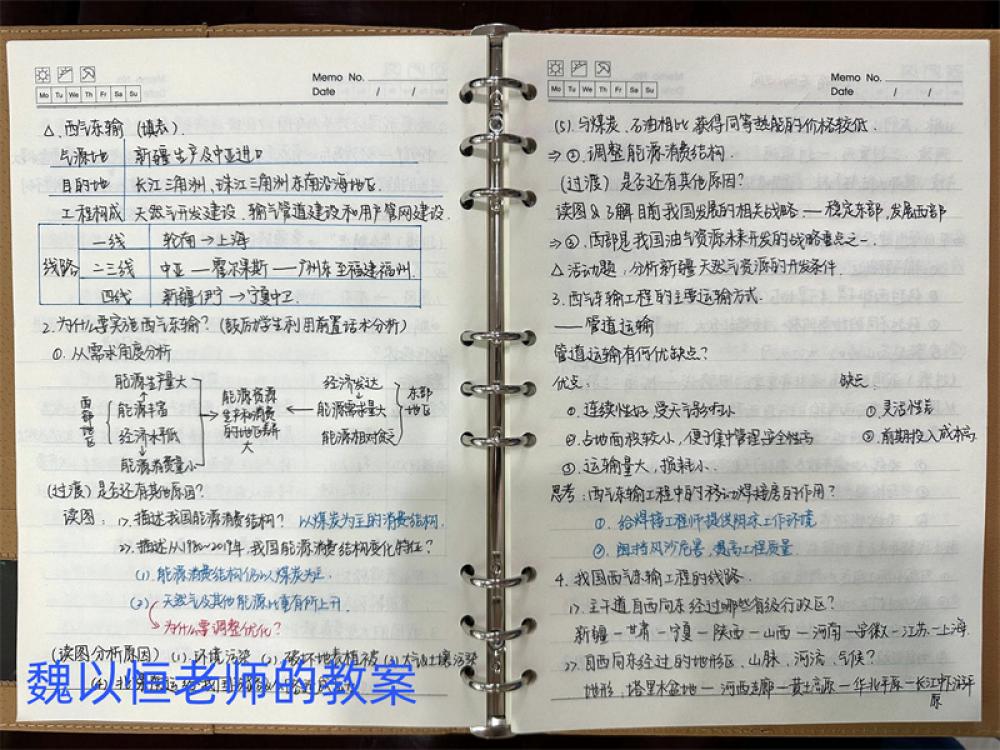 Memo No.
Mo Tu We Th Fr Sa Su
Date / /
△. 西气东输 (填表).
气源地 新疆生产及中亚进口
目的地 长江三角洲、珠江三角洲东南沿海地区.
工程构成 天然气开发建设、输气管道建设和用户管网建设.
线路
一线 轮南→上海
二三线 中亚—霍尔果斯—广州东至福建福州.
四线 新疆伊宁→宁夏中卫.
2.为什么要实施西气东输?
①.从需求角度分析
西部地区
能源生产量大
能源丰富
经济水平低
能源消费量小
能源资源生产和消费的地区差异大
经济发达
能源需求量大
能源相对贫乏
东部地区
(过渡) 是否还有其他原因?
读图: 1>.描述我国能源消费结构? 以煤炭为主的消费结构.
2>.描述从1980~2019年,我国能源消费结构变化特征?
(1).能源消费结构仍以煤炭为主.
(2).天然气及其他能源比重有所上升.
为什么要调整优化?
(读图分析原因) (1).环境污染 (2).破坏地表植被 (3)大气土壤污染
(4).
魏以恒老师的教案
Memo No.
Mo Tu We Th Fr Sa Su
Date / /
(5).与煤炭、石油相比获得同等热能的价格较低.
⇒①.调整能源消费结构.
(过渡) 是否还有其他原因?
读图8了解目前我国发展的相关战略——稳定东部,发展西部
⇒②.西部是我国油气资源未来开发的战略重点之一.
△活动题,分析新疆天然气资源的开发条件.
3.西气东输工程的主要运输方式.
——管道运输
管道运输有何优缺点?
优点: 缺点
①.连续性好,受天气影响小 ①.灵活性差
②.占地面积较小,便于集中管理,安全性高 ②.前期投入成本高.
③.运输量大,损耗小.
思考:西气东输工程中的移动焊接房的作用?
①.给焊接工程师提供阴凉工作环境
②.阻挡风沙危害,提高工程质量
4.我国西气东输工程的线路.
1>.主干道自西向东经过哪些省级行政区?
新疆—甘肃—宁夏—陕西—山西—河南—安徽—江苏—上海.
2>.自西向东经过的地形区、山脉、河流、气候?
地形:塔里木盆地—河西走廊—黄土高原—华北平原—长江中下游平原